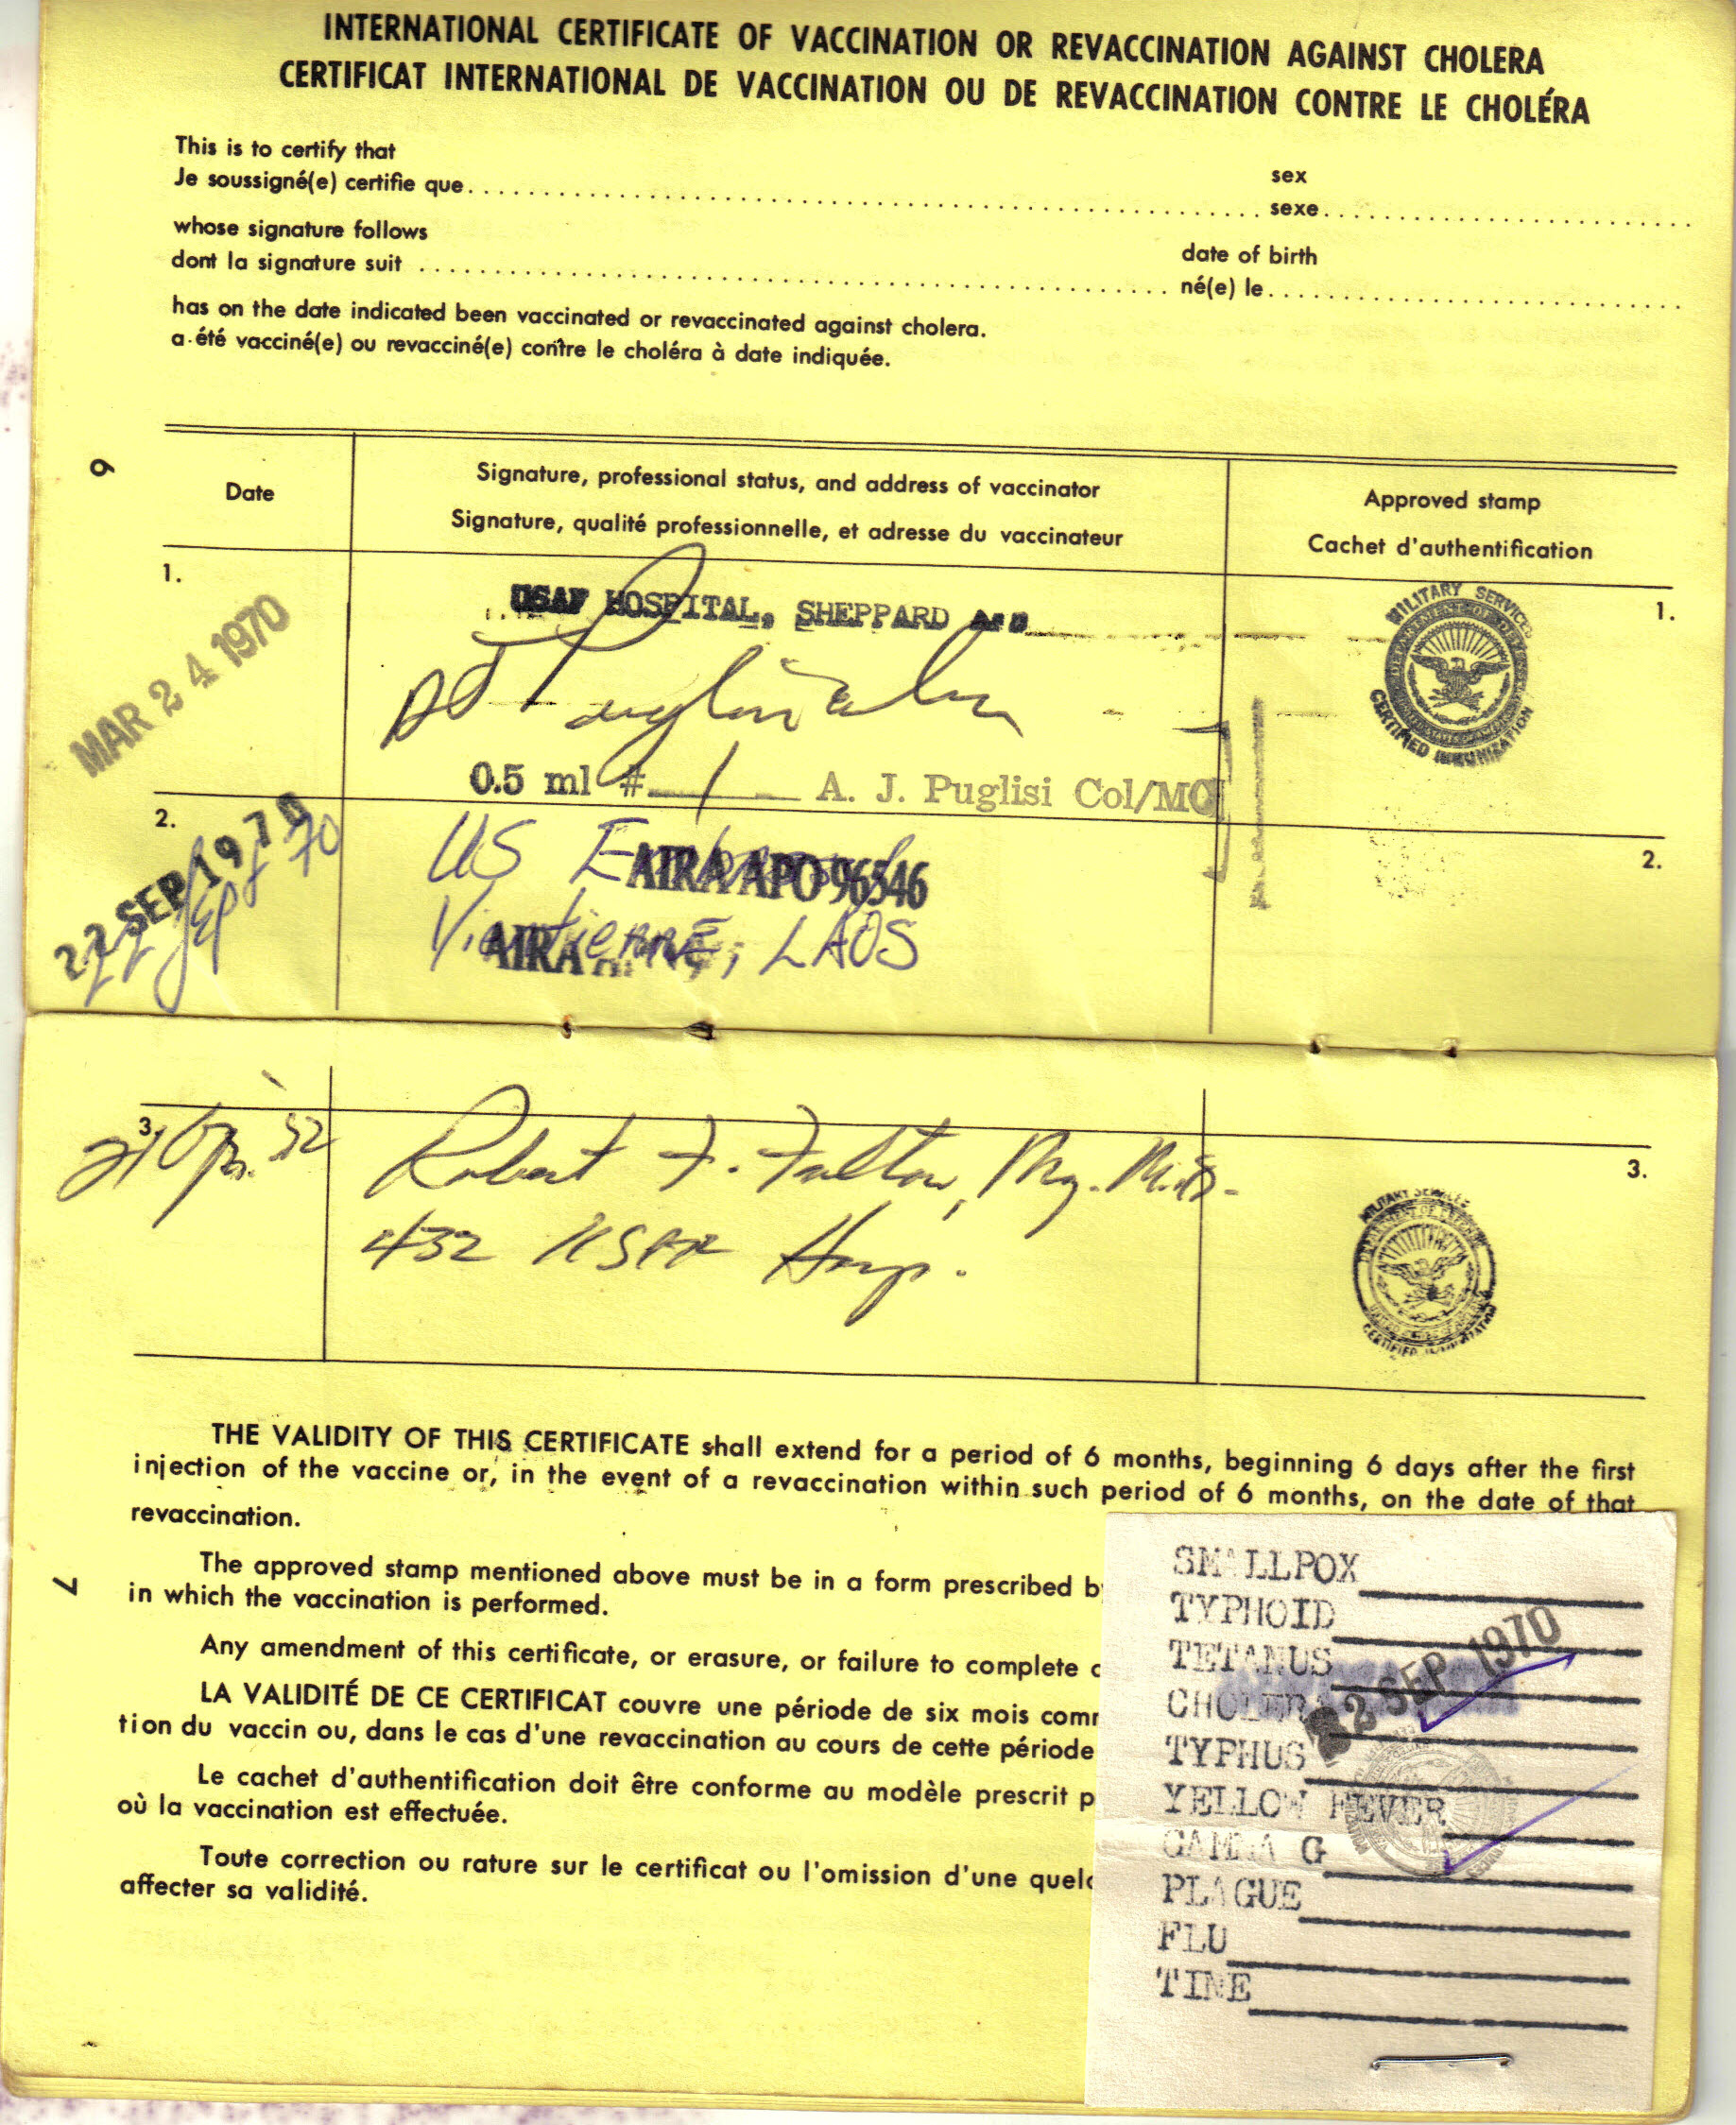 INTERNATIONAL CERTIFICATE OF VACCINATION OR REVACCINATION AGAINST CHOLERA
CERTIFICAT INTERNATIONAL DE VACCINATION OU DE REVACCINATION CONTRE LE CHOLÉRA
This is to certify that
Je soussigné(e) certifie que
sex
sexe
whose signature follows
dont la signature suit
date of birth
né(e) le
has on the date indicated been vaccinated or revaccinated against cholera.
a été vacciné(e) ou revacciné(e) contre le choléra à date indiquée.
6
Date
Signature, professional status, and address of vaccinator
Signature, qualité professionnelle, et adresse du vaccinateur
Approved stamp
Cachet d'authentification
1.
MAR 24 1970
USAF HOSPITAL, SHEPPARD AFB
0.5 ml # 1 A. J. Puglisi Col/MC
MILITARY SERVICES
CERTIFIED IMMUNIZATION
1.
2.
22 SEP 1970
22 Sept 70
US Embassy
AIRA APO 96546
Vientiane, LAOS
AIRA
2.
3.
Robert F. Fulton,
432 USAF Hosp.
MILITARY SERVICES
DEPARTMENT OF DEFENSE
CERTIFIED IMMUNIZATION
3.
THE VALIDITY OF THIS CERTIFICATE shall extend for a period of 6 months, beginning 6 days after the first
injection of the vaccine or, in the event of a revaccination within such period of 6 months, on the date of that
revaccination.
The approved stamp mentioned above must be in a form prescribed b
in which the vaccination is performed.
Any amendment of this certificate, or erasure, or failure to complete
LA VALIDITÉ DE CE CERTIFICAT couvre une période de six mois com
tion du vaccin ou, dans le cas d'une revaccination au cours de cette période
Le cachet d'authentification doit être conforme au modèle prescrit p
où la vaccination est effectuée.
Toute correction ou rature sur le certificat ou l'omission d'une quelc
affecter sa validité.
7
SMALLPOX
TYPHOID
TETANUS
CHOLERA
22 SEP 1970
TYPHUS
YELLOW FEVER
GAMMA G
PLAGUE
FLU
TINE